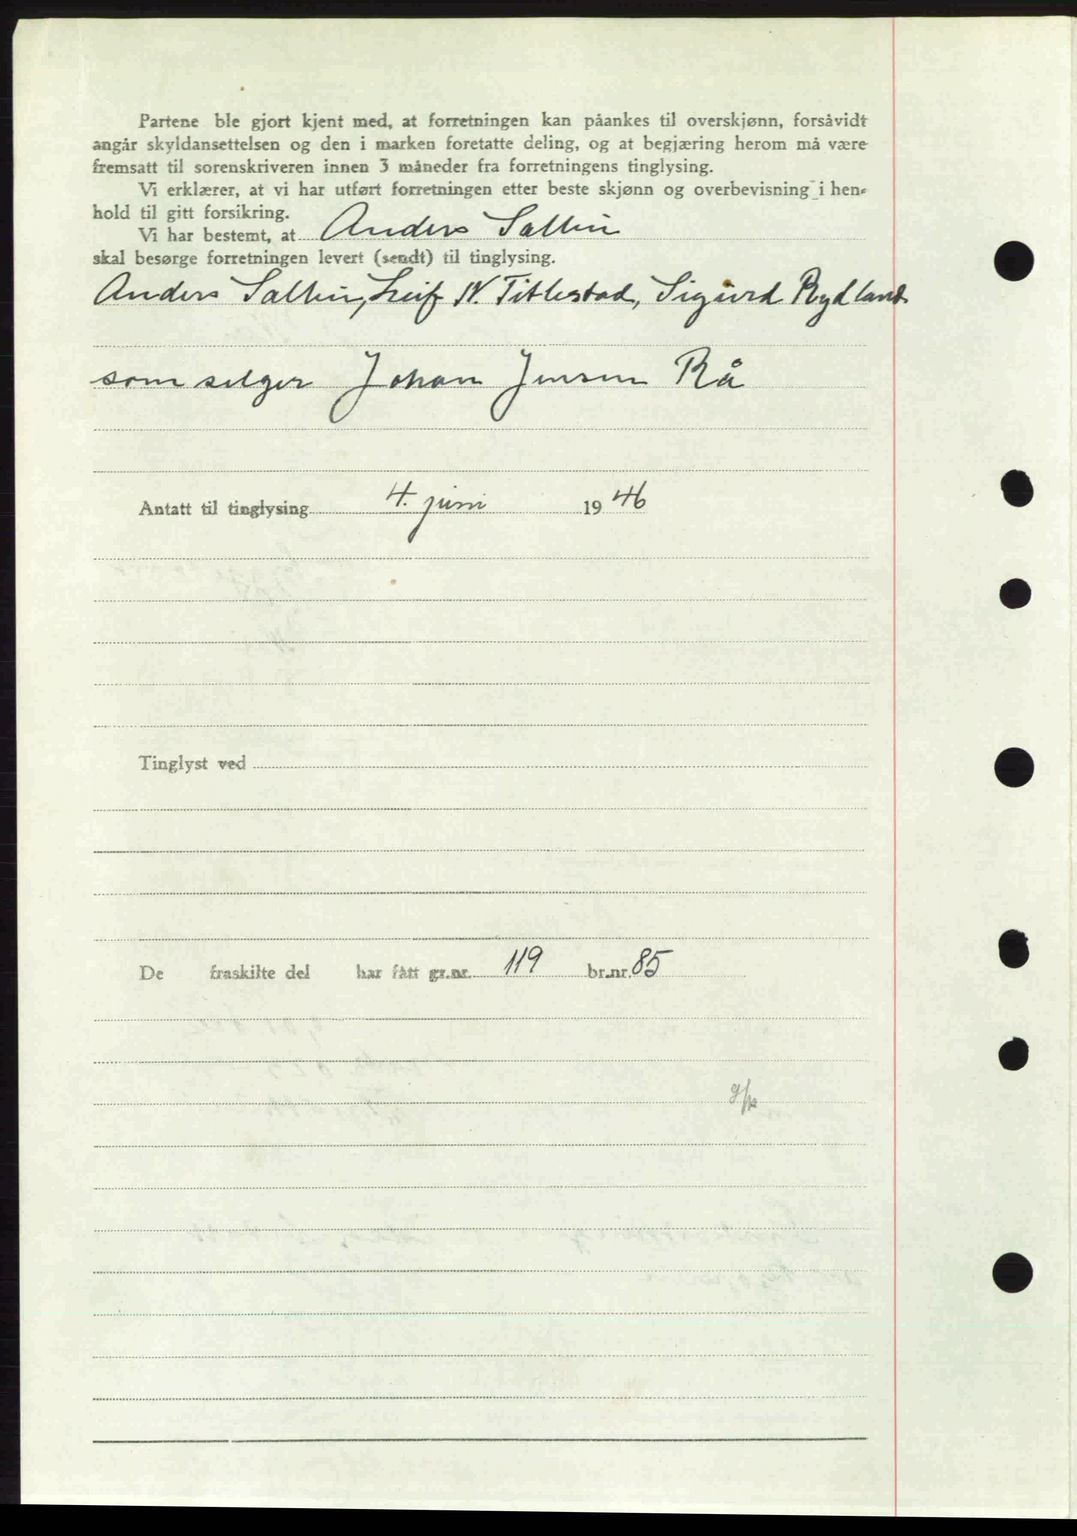 Partene ble gjort kjent med, at forretningen kan påankes til overskjønn, forsåvidt
angår skyldansettelsen og den i marken foretatte deling, og at begjæring herom må være
fremsatt til sorenskriveren innen 3 måneder fra forretningens tinglysing.
Vi erklærer, at vi har utført forretningen etter beste skjønn og overbevisning i hen-
hold til gitt forsikring.
Vi har bestemt, at Anders
skal besørge forretningen levert (sendt) til tinglysing.
Anders Leif N. Titlestad, Sigurd Rydland
som selger Johan Jensen Rå
Antatt til tinglysing 4. juni 1946
Tinglyst ved
De fraskilte del har fått gr.nr. 119 br.nr. 85